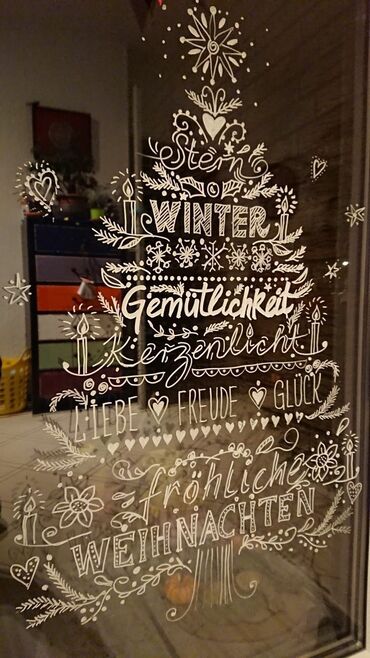 Sterne
WINTER
Gemütlichkeit
Kerzenlicht
LIEBE FREUDE GLÜCK
fröhliche
WEIHNACHTEN